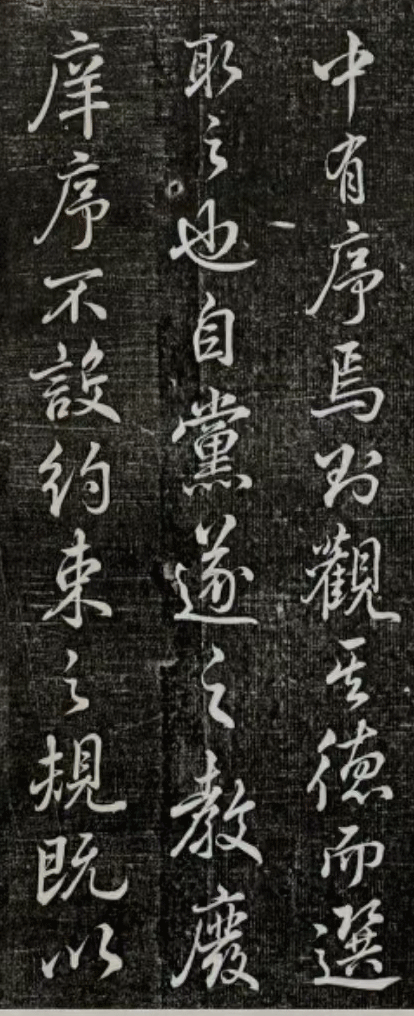 中有序焉到觀其德而選
取之也自黨遂之教廢
庠序不設約束之規既以